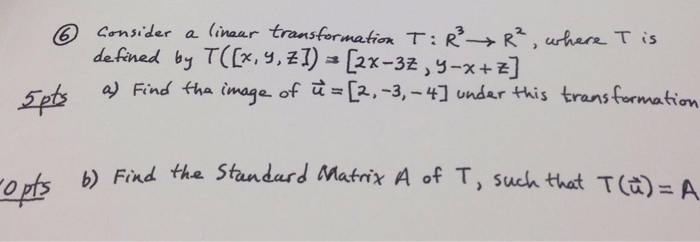 ⑥ Consider a linear transformation T: R³ → R², where T is
defined by T([x, y, z]) = [2x-3z, y-x+z]
5pts a) Find the image of u⃗ = [2, -3, -4] under this transformation
0pts b) Find the Standard Matrix A of T, such that T(u⃗) = A